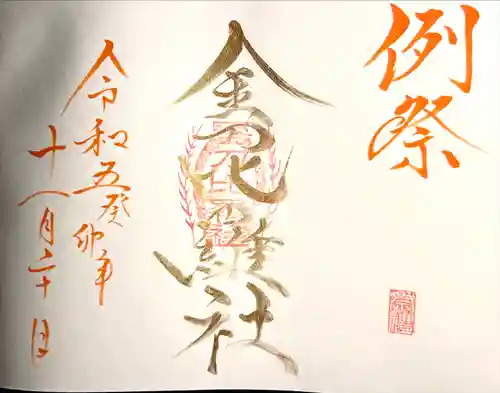 例祭
金刀比羅社
令和五癸卯年
十一月二十日